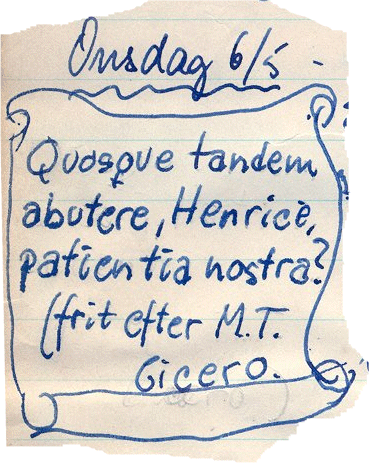 Onsdag 6/5 -
Quosque tandem
abutere, Henrice,
patientia nostra?
(frit efter M.T.
Cicero.